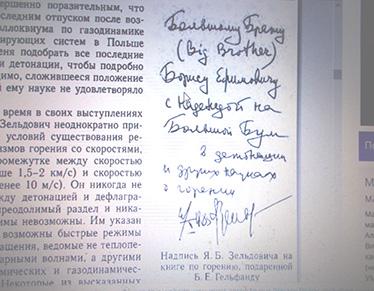 вершенно поразительным, что
последний отпуск после воз-
ллоквиума по газодинамике
гирующих систем в Польше
еня подобрать все последние
и детонации, чтобы подробно
димо, сложившееся положение
ой ему науке не удовлетворяло
время в своих выступлениях
Зельдович неоднократно при-
условий существования ре-
измов горения со скоростями,
ромежутке между скоростью
ше 1,5–2 км/с) и скоростью
енее 10 м/с). Он никогда не
жду детонацией и дефлагра-
преодолимый раздел и ника-
имы невозможны. Им указан
возможны быстрые режимы
ащения, ведомые не теплопе-
арными волнами, а другими
мических и газодинамичес-
Некоторые из высказанных
Большому Брату
(Big Brother)
Борису Ефимовичу
с надеждой на
Большой Бум
в детонации
и других науках
о горении
Надпись Я. Б. Зельдовича на
книге по горению, подаренной
Б. Е. Гельфанду